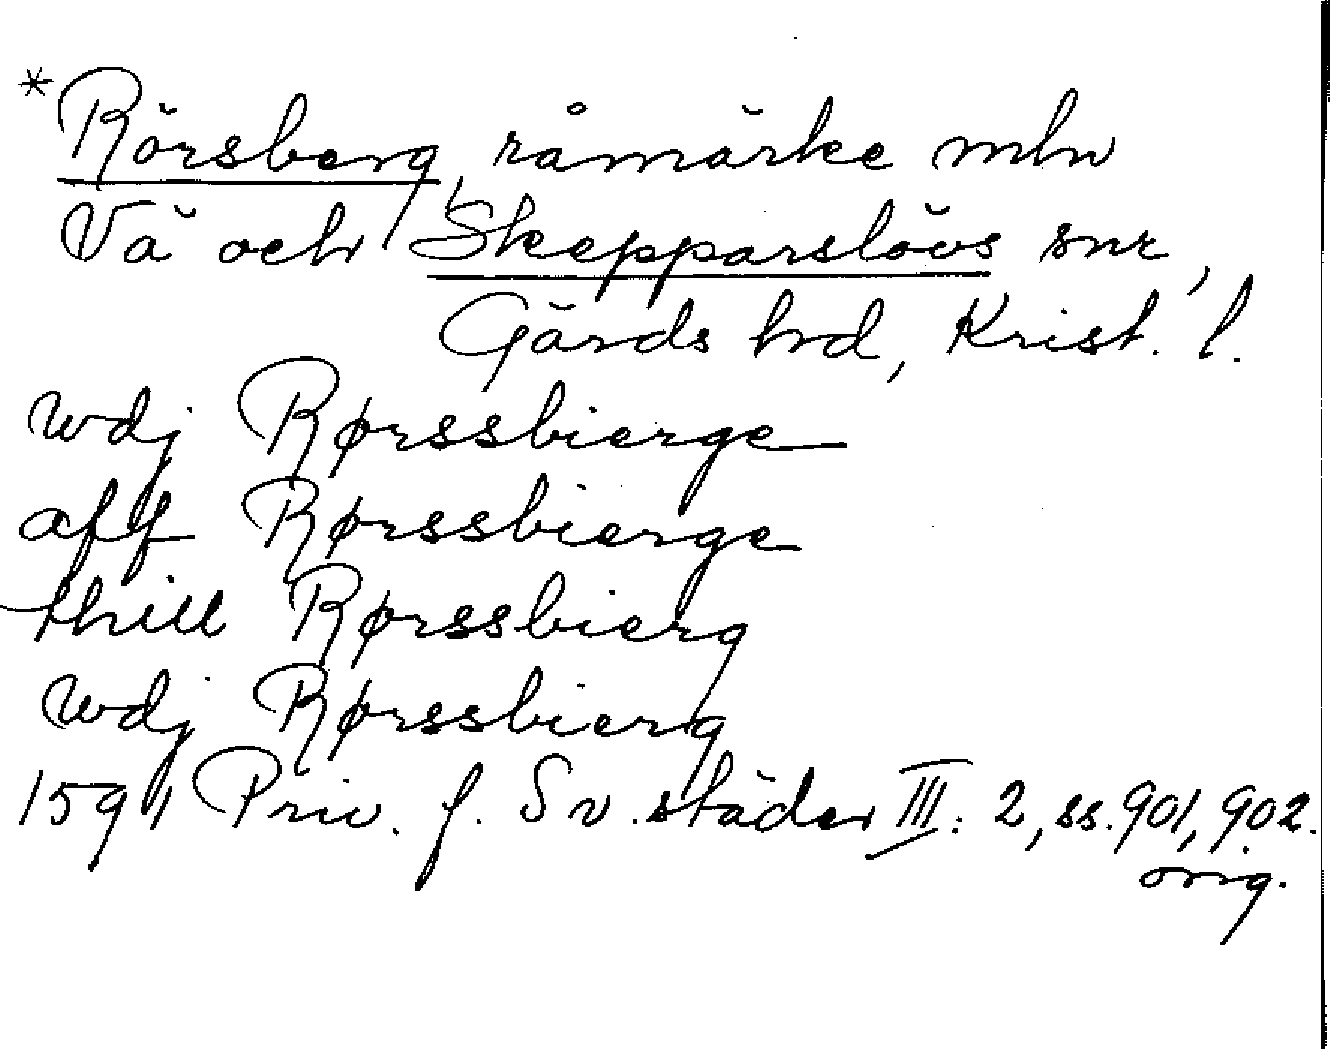 *Rörsberg, råmärke mln
Vä och Skepparslövs snr,
Gärds hrd, Krist. l.
wdj Rørssbierge
aff Rørssbierge
thill Rørssbierg
wdj Rørssbierg
1591 Priv. f. Sv. städer III: 2, ss. 901, 902.
orig.